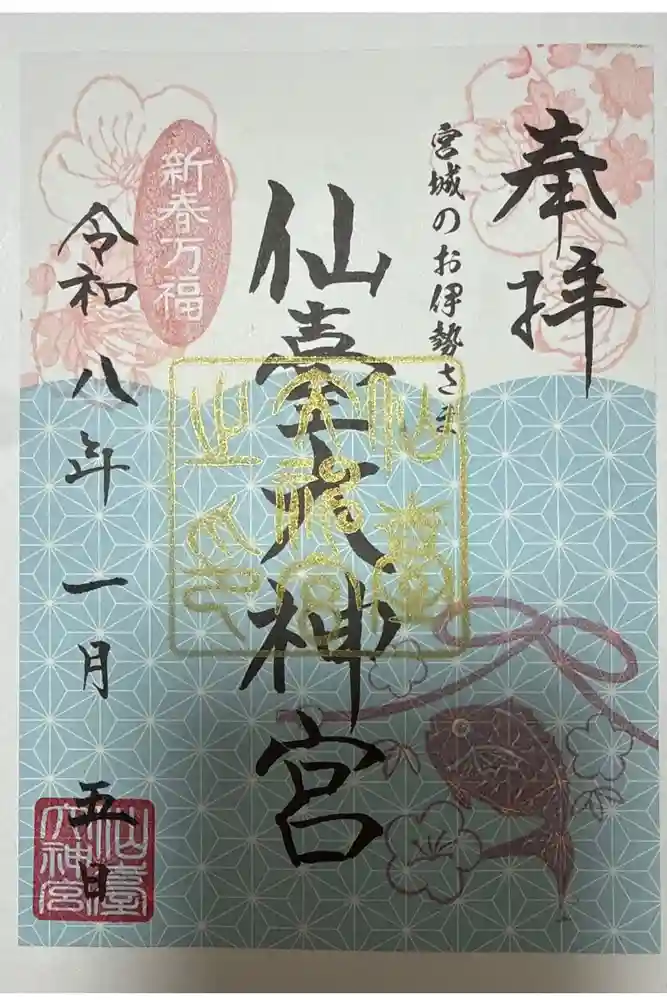 奉拝
宮城のお伊勢さま
仙臺大神宮
新春万福
令和八年一月五日
仙臺大神宮
仙臺大神宮之印